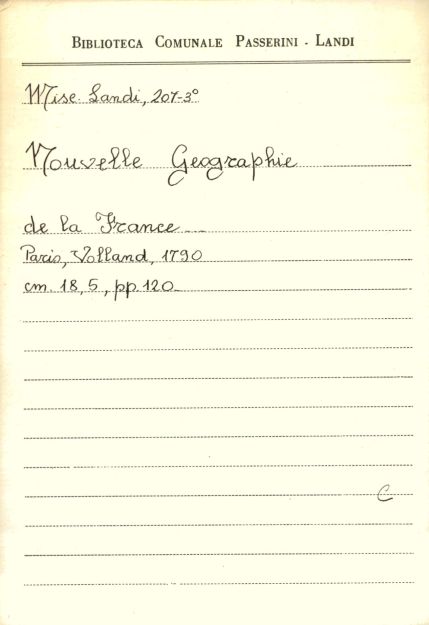 BIBLIOTECA COMUNALE PASSERINI - LANDI
Misc. Landi, 207-3°
Nouvelle Geographie
de la France
Paris, Volland, 1790
cm. 18,5, pp. 120
C